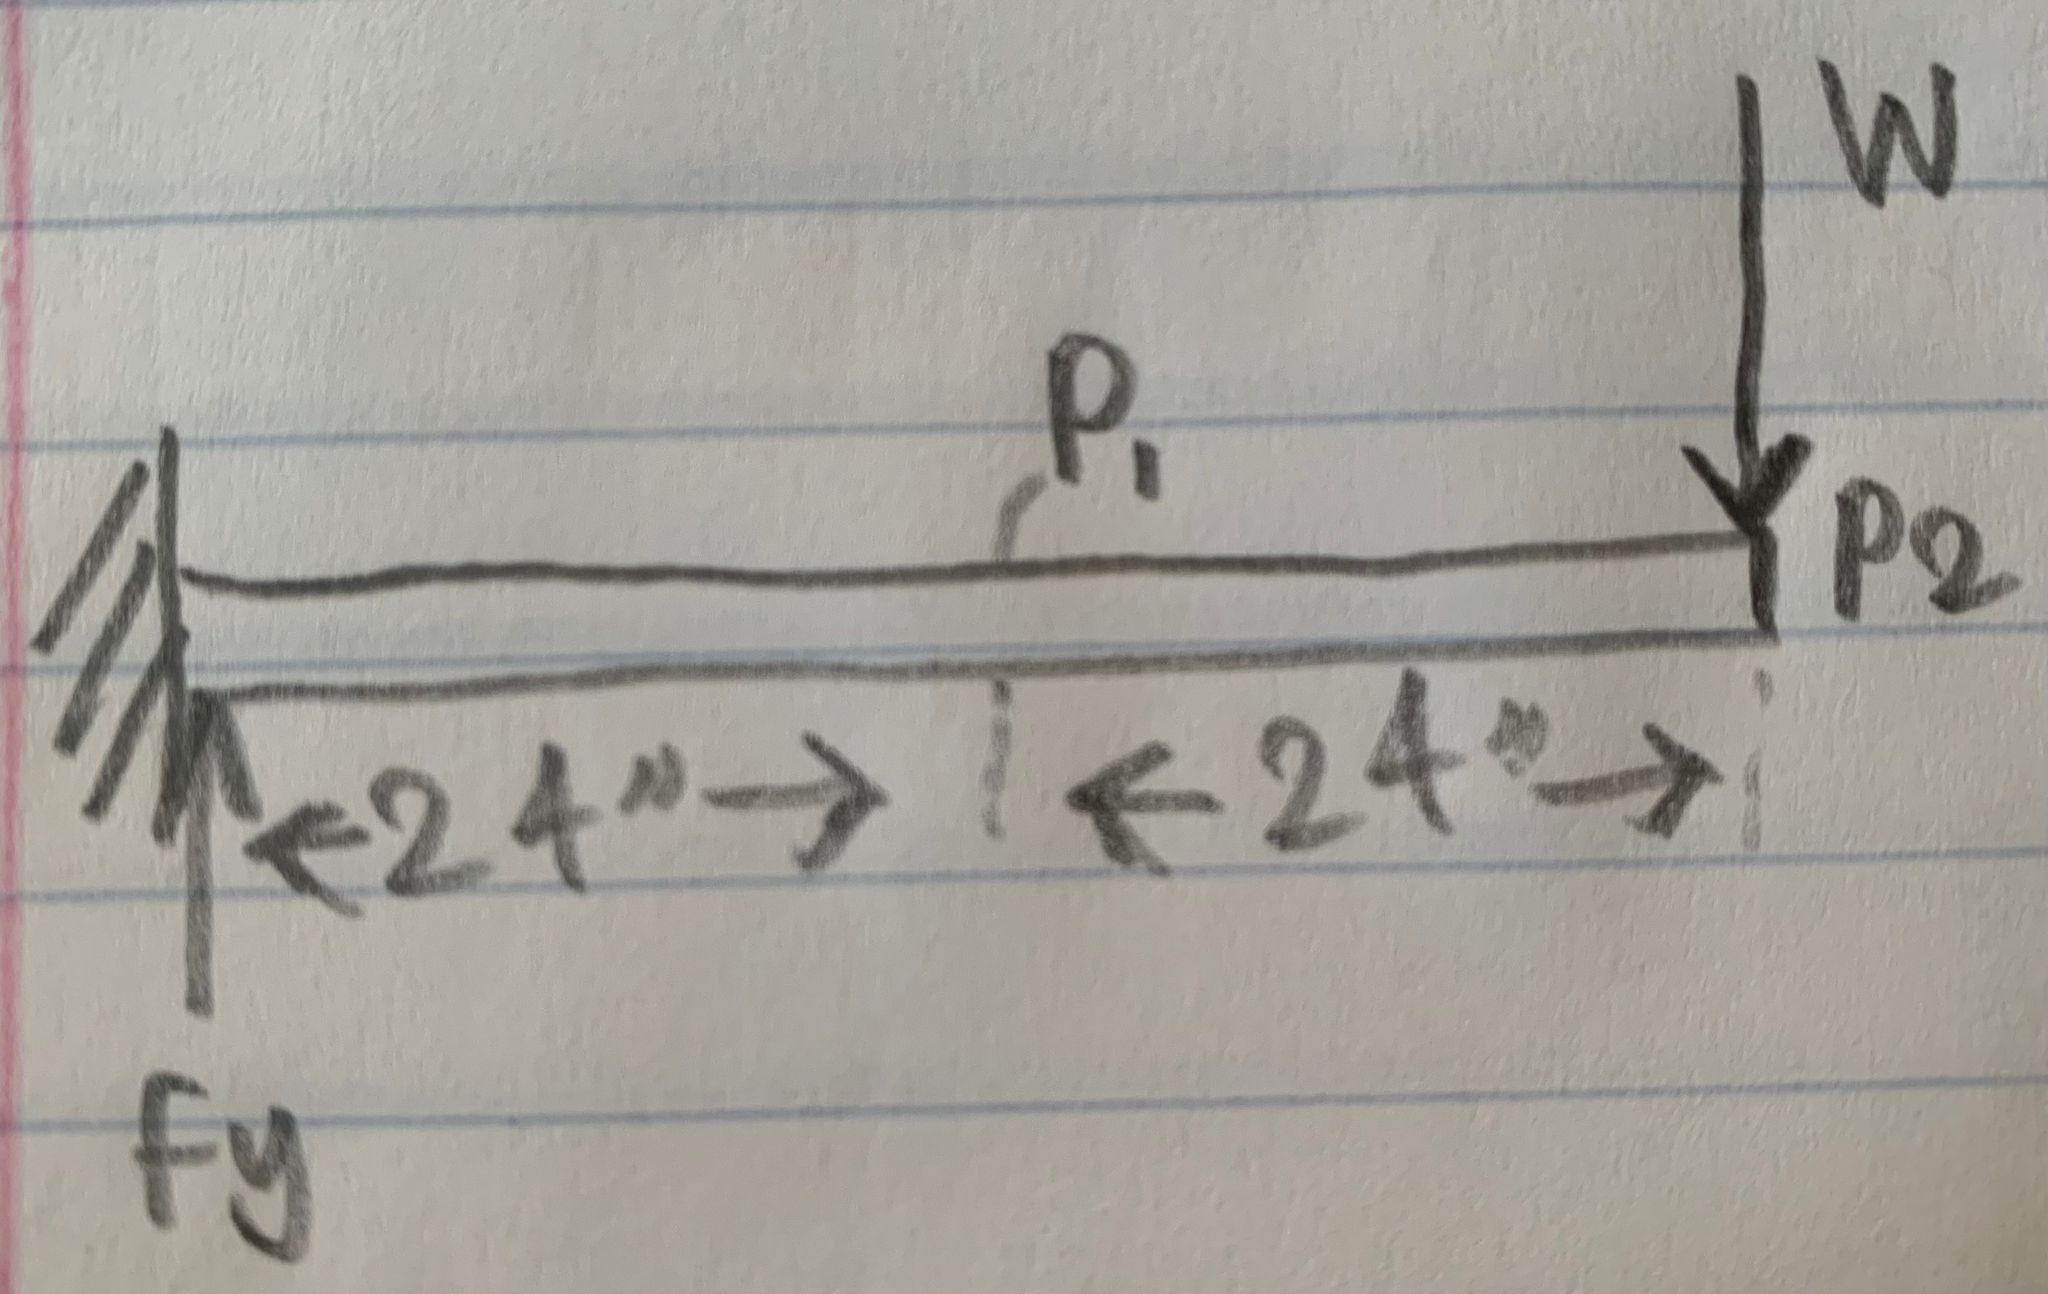 W
P1
P2
24" 24"
Fy